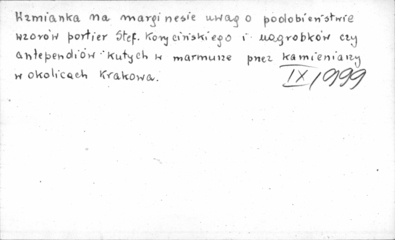 Wzmianka na marginesie uwag o podobieństwie
wzorów portier Stef. Korycińskiego i nagrobków czy
antependiów kutych w marmurze przez kamieniarzy
w okolicach Krakowa.
IX/1999